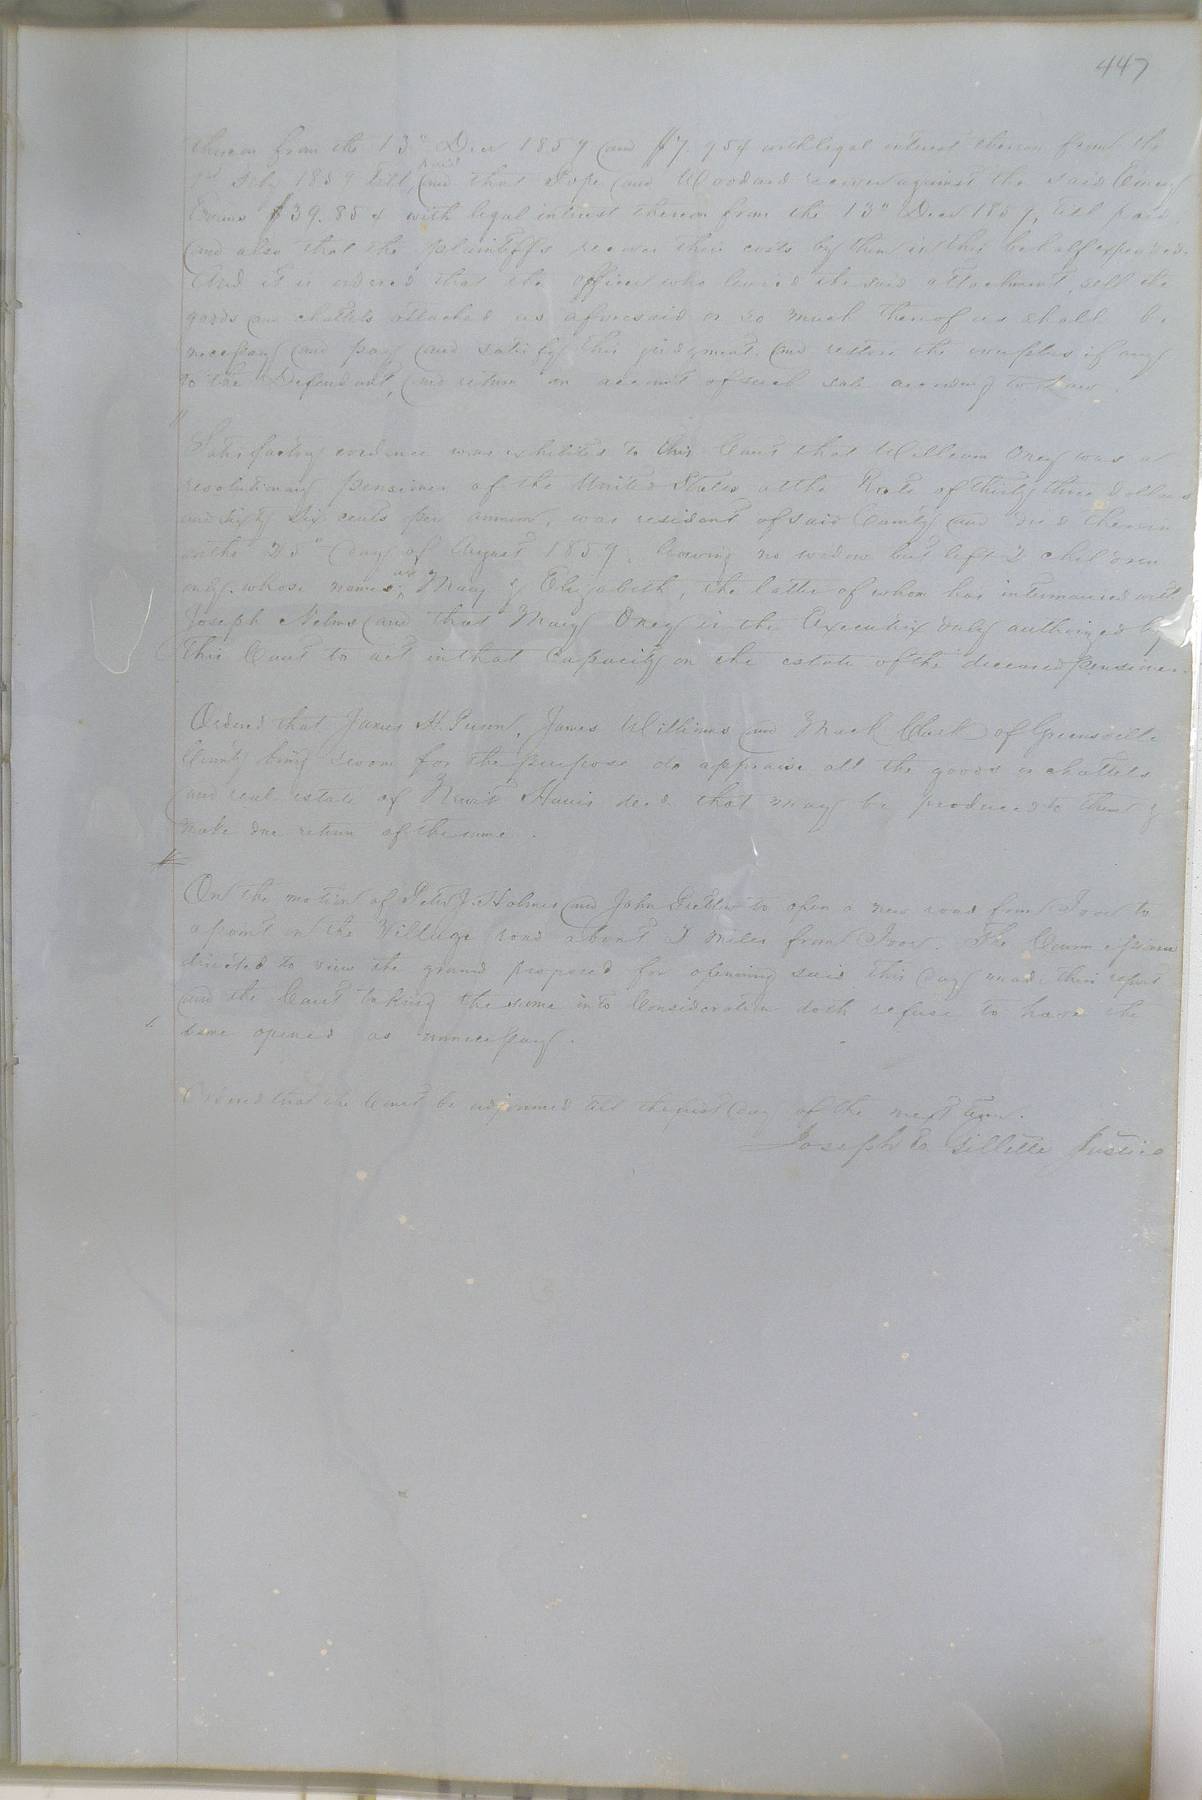 447
thereon from the 13" Decr 1859 and $7.954 with legal interest thereon from the
July 1859 till paid and that Pope and Woodard recover against the said
Evans $39.854 with legal interest thereon from the 13" Decr 1857, till paid
and also that the plaintiffs recover their costs by them in this behalf expended.
And it is ordered that the officer who levied the said attachment, sell the
goods and chattels attached as aforesaid or so much thereof as shall be
necessary and pay and satisfy this judgment, and restore the surplus if any
to the Defendant, and return an account of such sale according to Law.
Satisfactory evidence was exhibited to this Court that William Oney was a
revolutionary Pensioner of the United States at the Rate of thirty three dollars
and sixty six cents per annum, was resident of said County and died therein
on the 25" day of August 1859. leaving no widow but left 2 children
only, whose names are Mary & Elizabeth, the latter of whom has intermarried with
Joseph Nelms and that Mary Oney is the Executrix duly authorized by
this Court to act in that Capacity on the estate of the deceased pensioner.
Ordered that James H. James Williams and Mark Clark of Greensville
County being sworn for the purpose do appraise all the goods & chattels
and real estate of Harris decd. that may be produced to them &
make due return of the same.
On the motion of Peter J. Holmes and John to open a new road from Ivor to
a point on the Village road about 2 miles from Ivor. The Commissioners
directed to view the ground proposed for opening said this day made their report
and the Court taking the same into Consideration doth refuse to have the
same opened as unnecessary.
Ordered that the Court be adjourned till the first day of the next term.
Joseph E. Gillette Justice